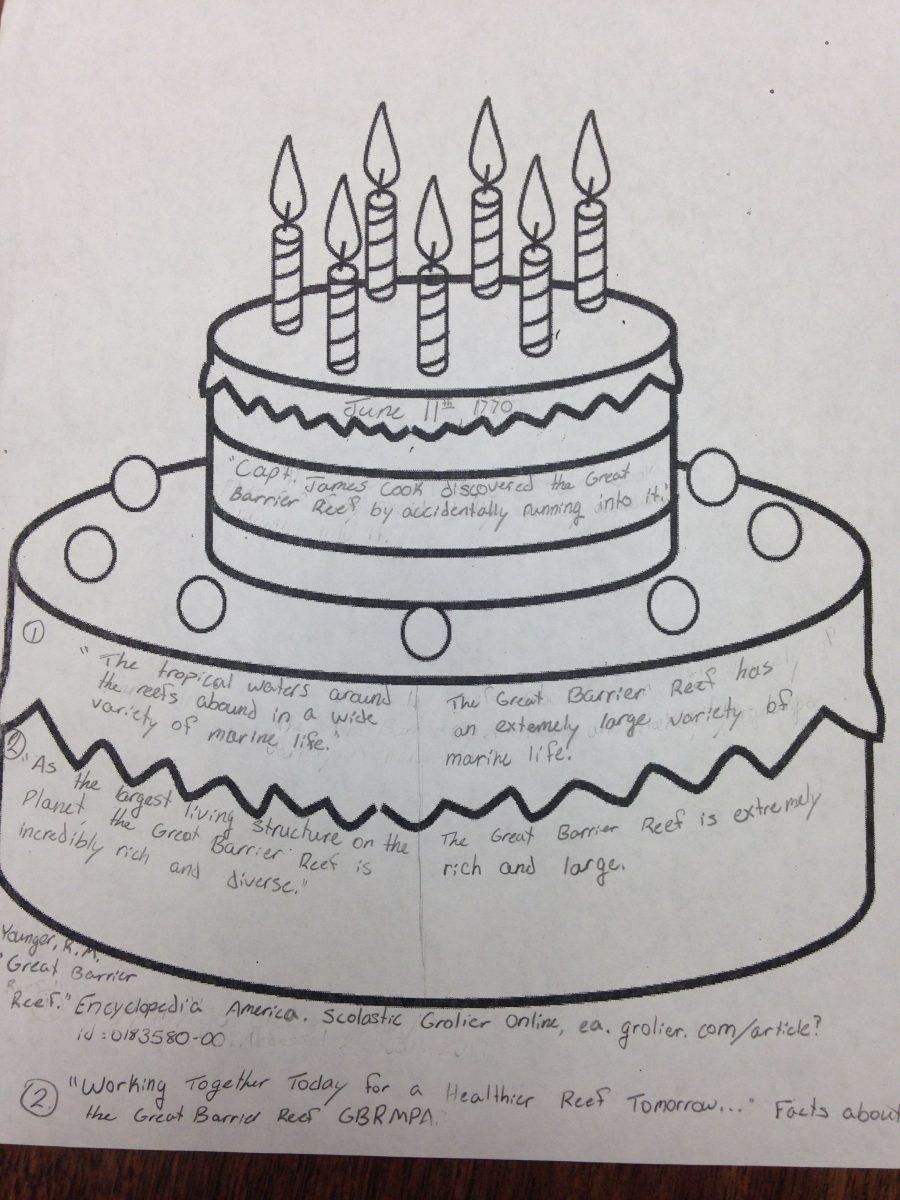 June 11th, 1770
"Capt. James Cook discovered the Great
Barrier Reef by accidentally running into it."
①
"The tropical waters around
the reefs abound in a wide
variety of marine life."
The Great Barrier Reef has
an extemely large variety of
marine life.
②
"As the largest living structure on the
Planet, the Great Barrier Reef is
incredibly rich and diverse."
The Great Barrier Reef is extremely
rich and large.
Younger, R.M.
"Great Barrier
Reef." Encyclopedia America. Scolastic Grolier Online, ea.grolier.com/article?
id:0183580-00
② "Working Together Today for a Healthier Reef Tomorrow..." Facts about
the Great Barrier Reef GBRMPA.